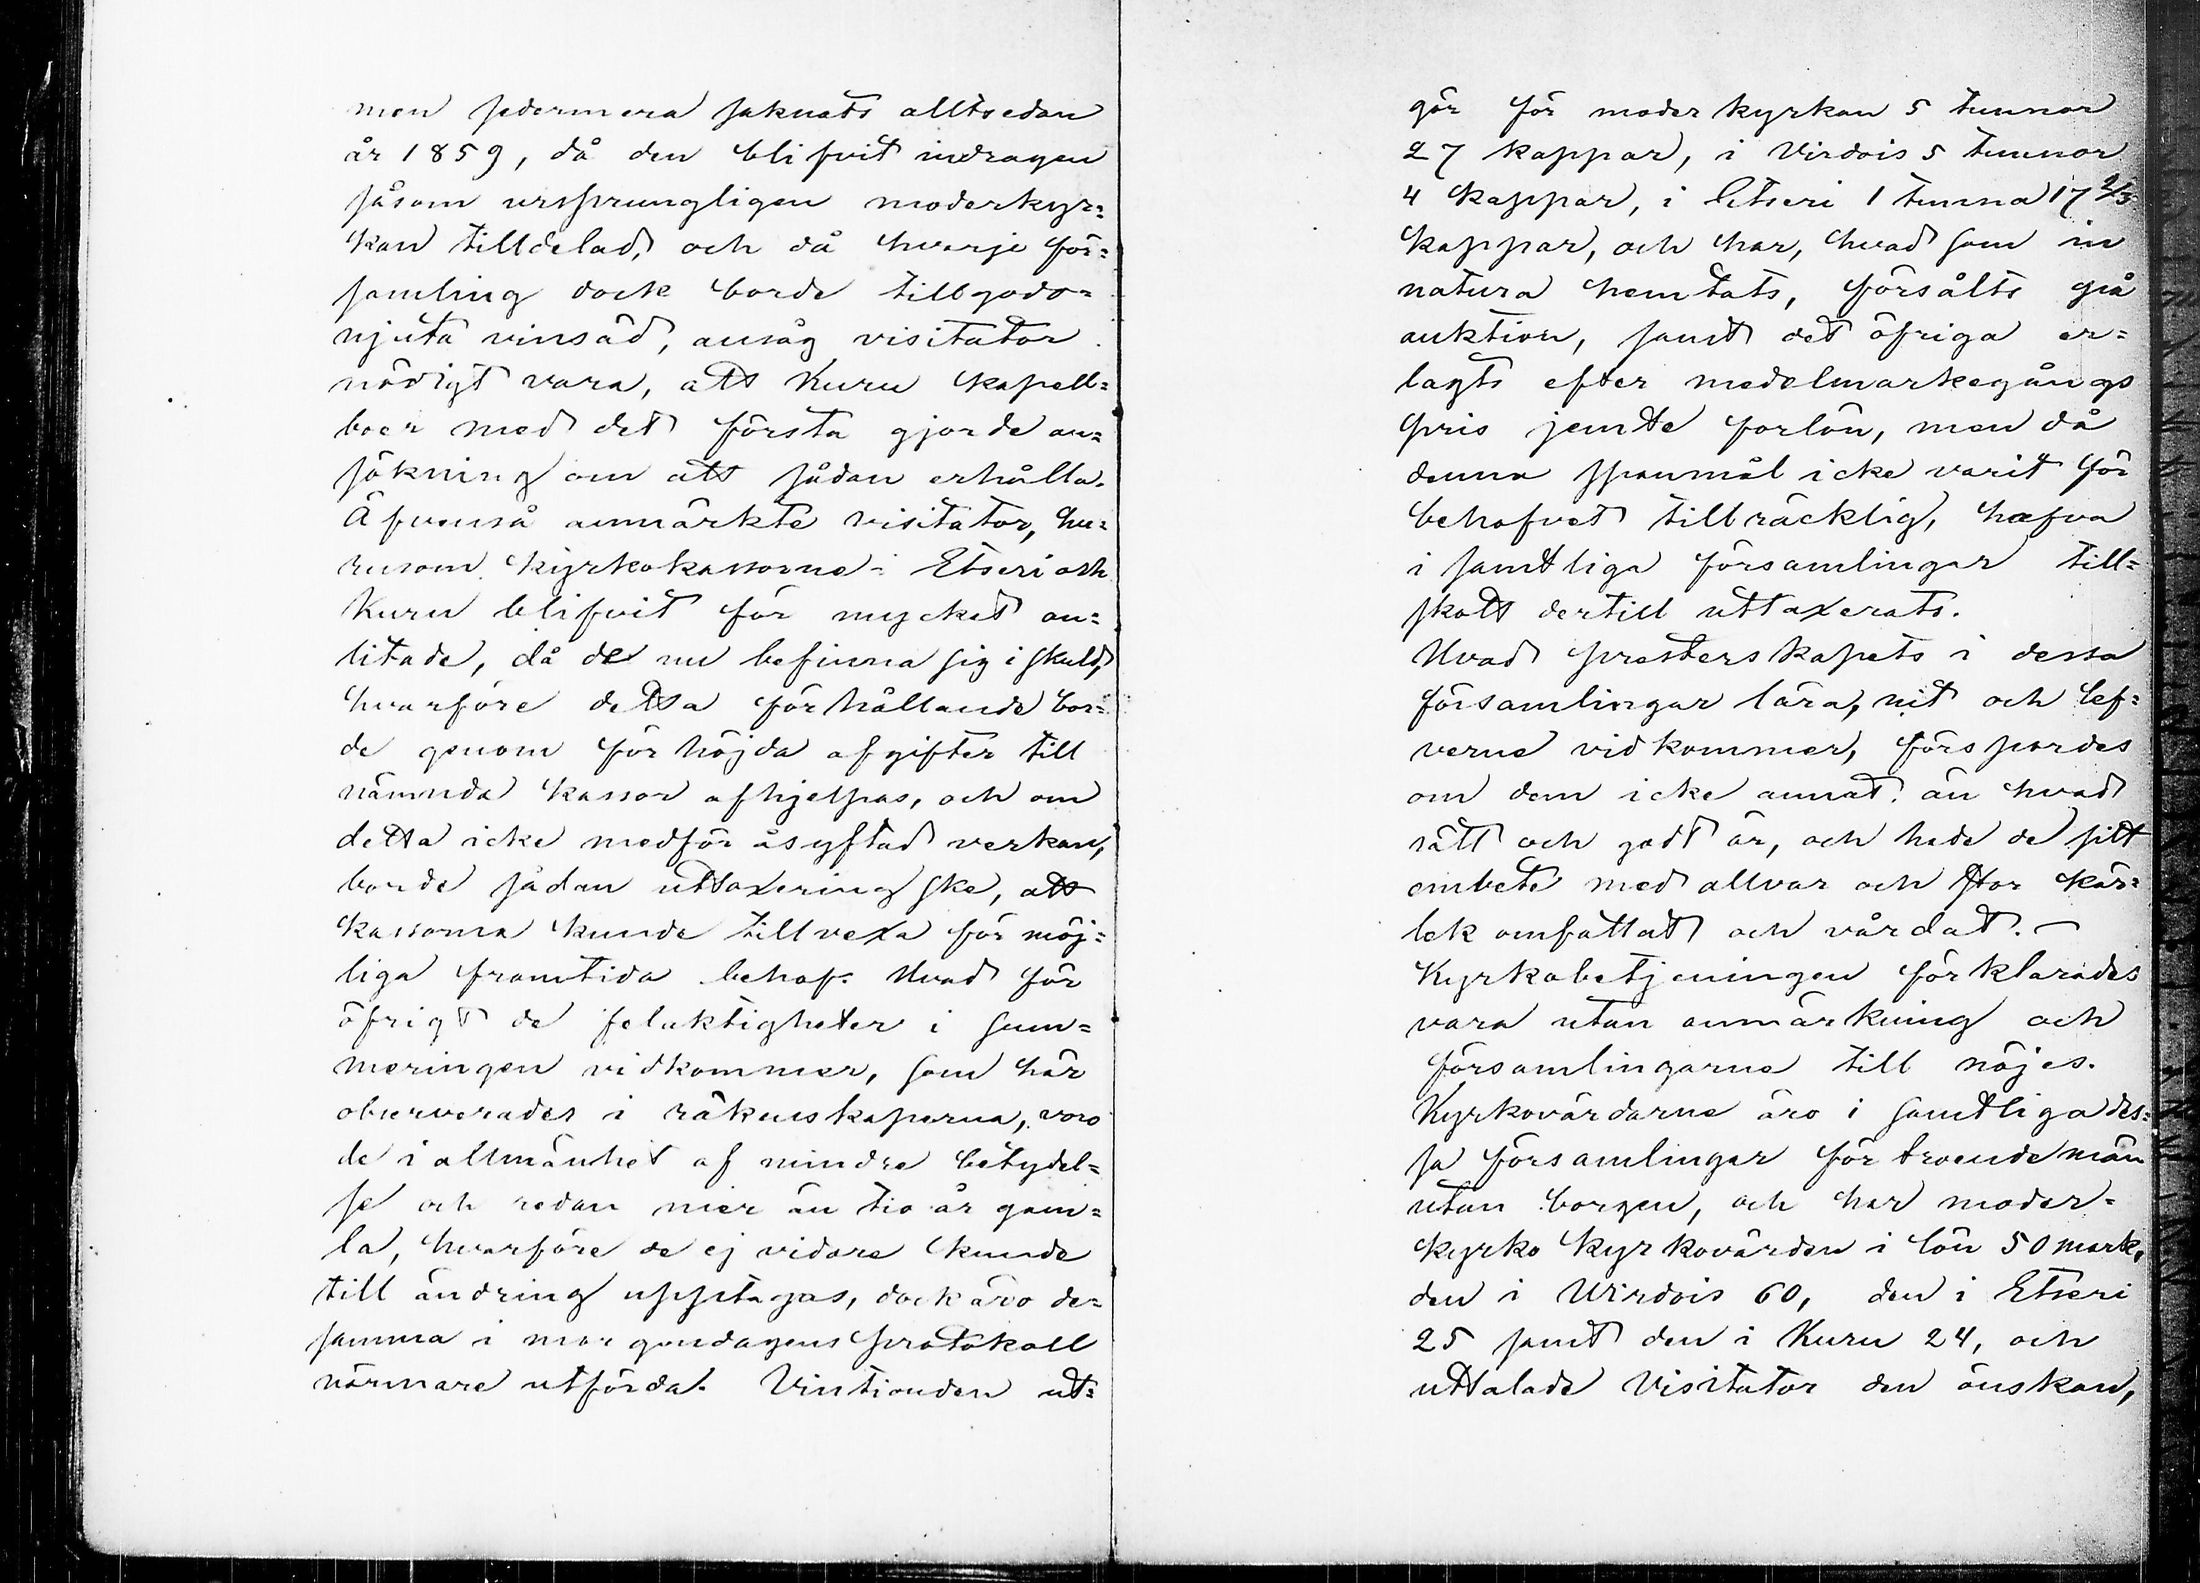 men sedermera saknats alltsedan
år 1859, då den blifvit indragen
såsom ursprungligen moderkyr=
kan tilldelad, och då hvarje för=
samling dock borde tillgodo=
njuta vinsäd, ansåg visitator
nödigt vara, att Kuru kapell=
boer med det första gjorde an=
sökning om att sådan erhålla.
Äfvenså anmärkte visitator, hu=
rusom kyrkokassorne i Etseri och
Kuru blifvit för mycket an=
litade, då de nu befinna sig i skuld,
hvarföre detta förhållande bor=
de genom förhöjda afgifter till
nämnda kassor afhjelpas, och om
detta icke medför åsyftad verkan,
borde sådan uttaxering ske, att
kassorna kunde tillvexa för möj=
liga framtida behof. Hvad för
öfrigt de felaktigheter i sum=
meringen vidkommer, som här
observerades i räkenskaperna, voro
de i allmänhet af mindre betydel=
se och redan mer än tio år gam=
la, hvarföre de ej vidare kunde
till ändring upptagas, dock äro de=
samma i morgondagens protokoll
närmare utförda. Vintionden ut=
gör för moderkyrkan 5 tunnor
27 kappar, i Virdois 5 tunnor
4 kappar, i Etseri 1 tunna 17 2/3
kappar, och har, hvad som in
natura hemtats, försålts på
auktion, samt det öfriga er=
lagts efter medelmarkegångs
pris jemte forlön, men då
denna spanmål icke varit för
behofvet tillräcklig, hafva
i samtliga församlingar till=
skott dertill uttaxerats.
Hvad presterskapets i dessa
församlingar lära, nit och lef=
verne vidkommer, förspordes
om dem icke annat än hvad
rätt och godt är, och hade de sitt
embete med allvar och stor kär=
lek omfattat och vårdat. –
Kyrkobetjeningen förklarades
vara utan anmärkning och
församlingarne till nöjes.
Kyrkovärdarne äro i samtliga des=
sa församlingar förtroendemän
utan borgen, och har moder=
kyrko kyrkovärden i lön 50 mark,
den i Wirdois 60, den i Etseri
25 samt den i Kuru 24, och
uttalade Visitator den önskan,